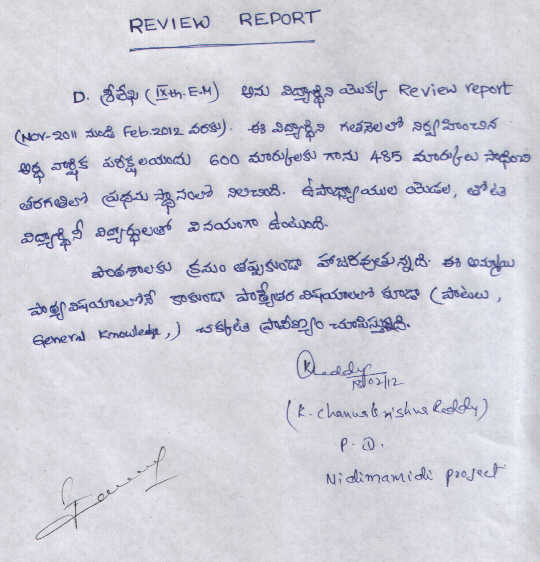 REVIEW REPORT
D. శ్రీలేఖ (IXth. E.M) అను విద్యార్థిని యొక్క Review report
(Nov-2011 నుండి Feb.2012 వరకు). ఈ విద్యార్థిని గతనెలలో నిర్వహించిన
అర్ధ వార్షిక పరీక్షలయందు 600 మార్కులకు గాను 485 మార్కులు సాధించి
తరగతిలో ప్రథమ స్థానంలో నిలిచింది. ఉపాధ్యాయుల యెడల, తోటి
విద్యార్థినీ విద్యార్థులతో వినయంగా ఉంటుంది.
పాఠశాలకు క్రమం తప్పకుండా హాజరవుతున్నది. ఈ అమ్మాయి
పాఠ్యవిషయాలలోనే కాకుండా పాఠ్యేతర విషయాలలో కూడా (పాటలు,
General Knowledge,) చక్కటి ప్రావీణ్యం చూపిస్తున్నది.
KReddy
02/12
(K. Chandra Reddy)
P. D.
Nidimamidi project